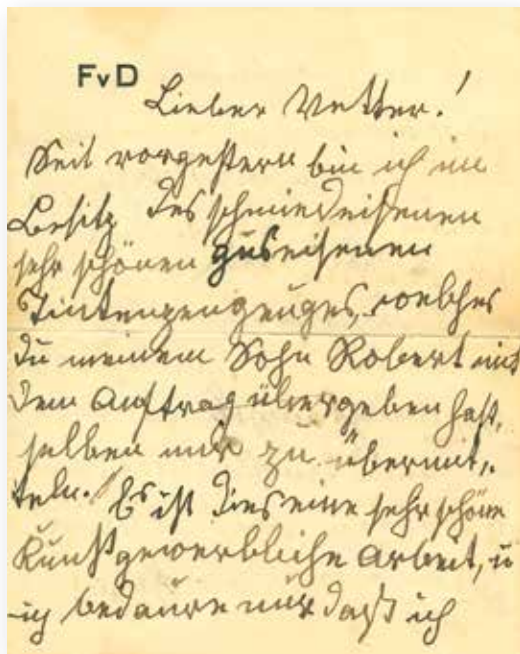 FvD
Lieber Vetter!
Seit vorgestern bin ich im
Besitz des schmiedeisenen
sehr schönen guseisenen
Tintenzeugzeuges, welches
Du meinem Sohn Robert mit
dem Auftrag übergeben hast,
selben mir zu übermit„
teln. Es ist dies eine sehr schöne
Kunstgewerbliche Arbeit, u
ich bedaure nur daß ich